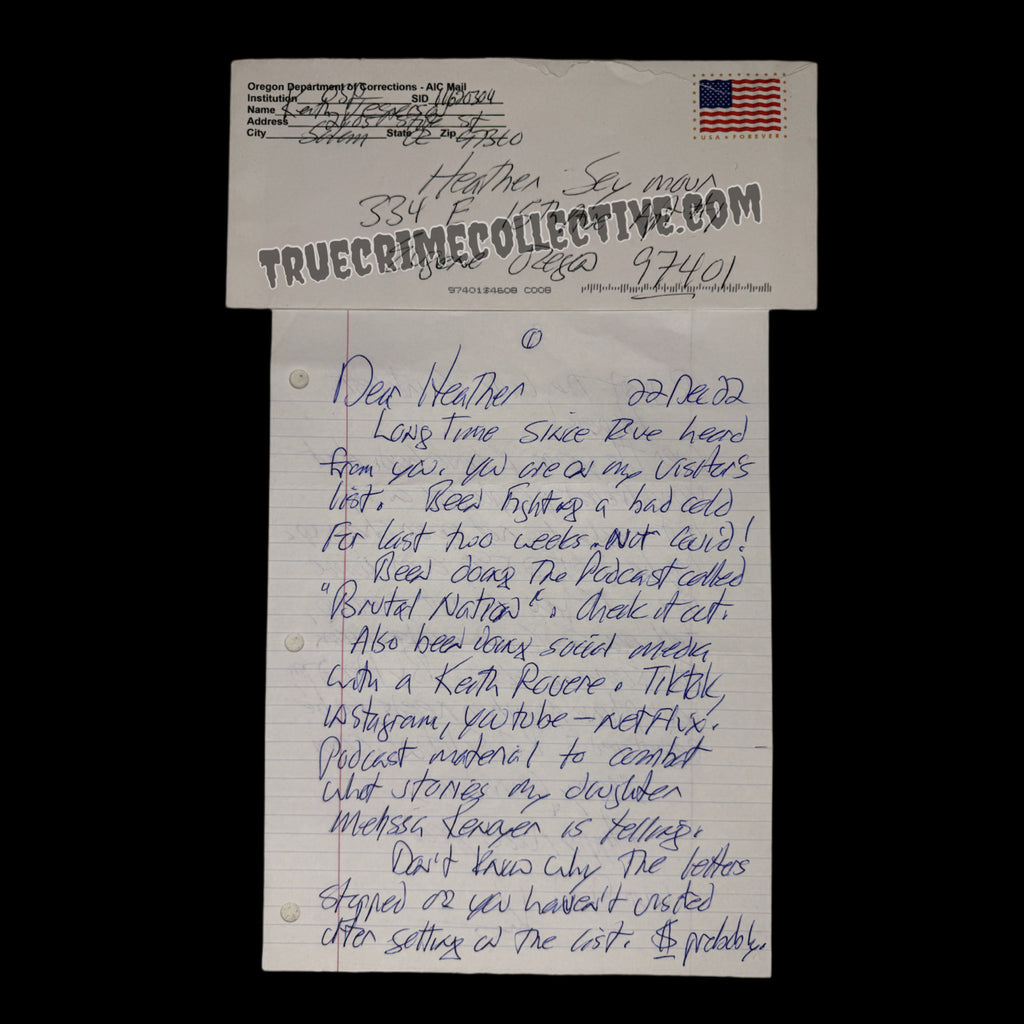 Oregon Department of Corrections - AIC Mail
Institution OSP SID 11620304
Name Keith Jesperson
Address 2605 State St
City Salem State OR Zip 97310
Heather Seymour
334 F 15th Ave
TRUECRIMECOLLECTIVE.COM
Eugene Oregon 97401
USA ★ FOREVER
①
Dear Heather 22 Dec 22
Long Time Since I've heard
from you. You are on my visitor's
list. Been Fighting a bad cold
For last two weeks. Not Covid!
Been doing The Podcast called
"Brutal Nation". Check it out.
Also been doing social media
with a Keith Rovere. Tiktok,
instagram, youtube – netflix.
Podcast material to combat
what stories my daughter
Melissa is telling.
Don't know why The letters
stopped or you haven't visited
after getting on the list. $ probably.